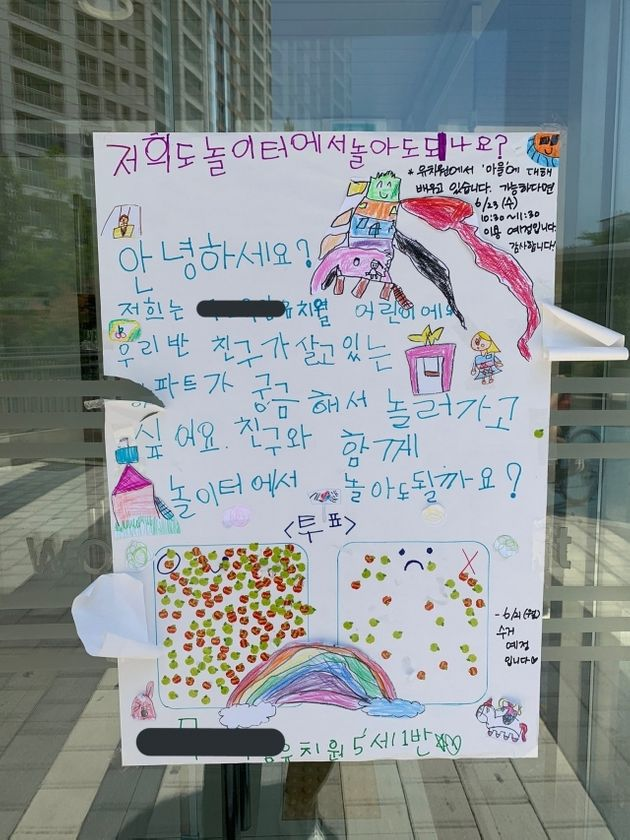 저희도 놀이터에서 놀아도 되나요?
* 유치원에서 '마을'에 대해
배우고 있습니다. 가능하다면
6/23 (수)
10:30~11:30
이용 예정입니다.
감사합니다!
안녕하세요?
저희는 유치원 어린이에요
우리반 친구가 살고있는
파트가 궁금해서 놀러가고
싶어요. 친구와 함께
놀이터에서 놀아도될까요?
<투표>
O
X
- 6/21 (월)
수거
예정
입니다♡
유치원 5세 1반